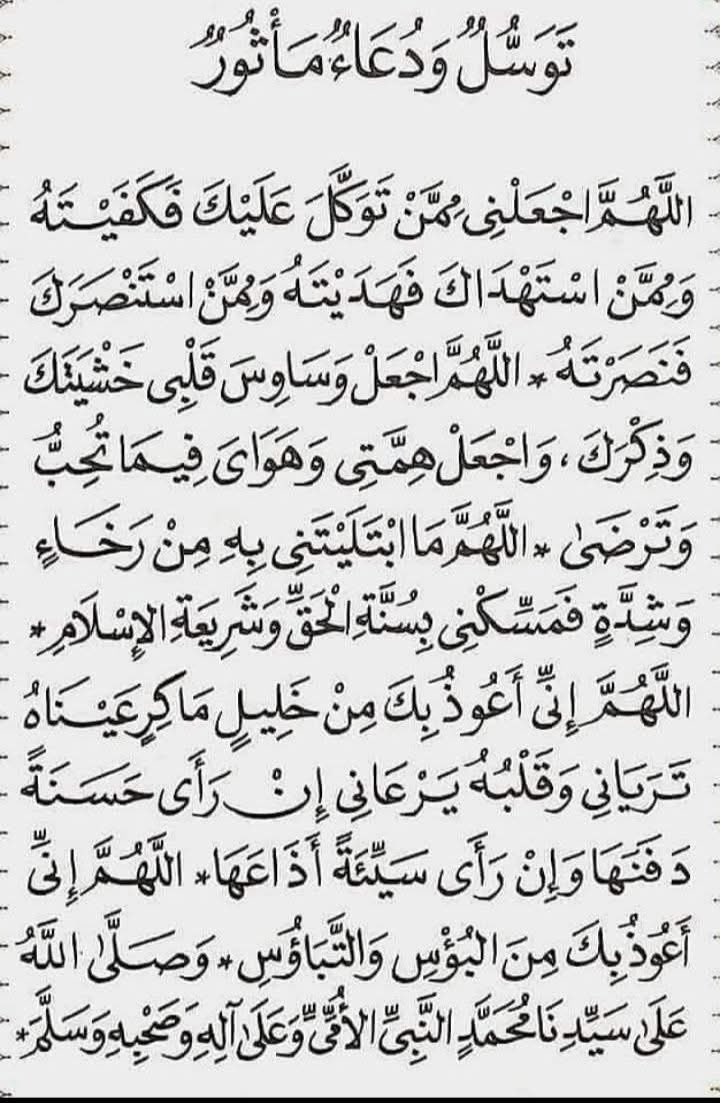 تَوَسُّلٌ وَدُعَاءٌ مَأْثُورٌ
اللَّهُمَّ اجْعَلْنِى مِمَّنْ تَوَكَّلَ عَلَيْكَ فَكَفَيْتَهُ
وَمِمَّنْ اسْتَهْدَاكَ فَهَدَيْتَهُ وَمِمَّنْ اسْتَنْصَرَكَ
فَنَصَرْتَهُ * اللَّهُمَّ اجْعَلْ وَسَاوِسَ قَلْبِى خَشْيَتَكَ
وَذِكْرَكَ ، وَاجْعَلْ هِمَّتِى وَهَوَاىَ فِيمَا تُحِبُّ
وَتَرْضَىٰ * اللَّهُمَّ مَا ابْتَلَيْتَنِى بِهِ مِنْ رَخَاءٍ
وَشِدَّةٍ فَمَسِّكْنِى بِسُنَّةِ الْحَقِّ وَشَرِيعَةِ الإِسْلَامِ *
اللَّهُمَّ إِنِّى أَعُوذُ بِكَ مِنْ خَلِيلٍ مَاكِرٍ عَيْنَاهُ
تَرَيَانِى وَقَلْبُهُ يَرْعَانِى إِنْ رَأَى حَسَنَةً
دَفَنَهَا وَإِنْ رَأَى سَيِّئَةً أَذَاعَهَا * اللَّهُمَّ إِنِّى
أَعُوذُ بِكَ مِنَ البُؤْسِ وَالتَّبَاؤُسِ * وَصَلَّىٰ اللَّهُ
عَلَىٰ سَيِّدِنَا مُحَمَّدٍ النَّبِىِّ الأُمِّىِّ وَعَلَىٰ آلِهِ وَصَحْبِهِ وَسَلَّمَ *